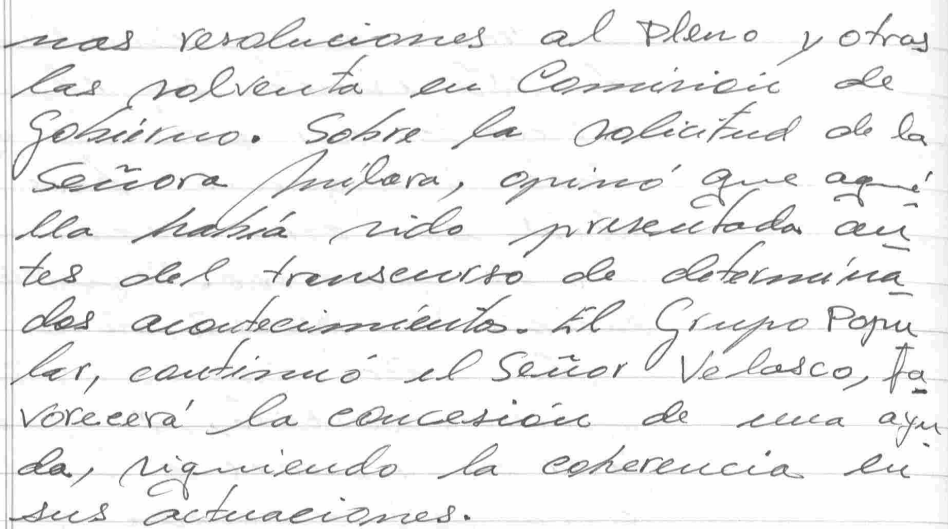 nas resoluciones al Pleno y otras
las solventa en Comisión de
Gobierno. Sobre la solicitud de la
Señora, opinó que aqué
lla había sido presentada an
tes del transcurso de determina
dos acontecimientos. El Grupo Popu
lar, continuó el Señor Velasco, fa
vorecerá la concesión de una ayu
da, siguiendo la coherencia en
sus actuaciones.